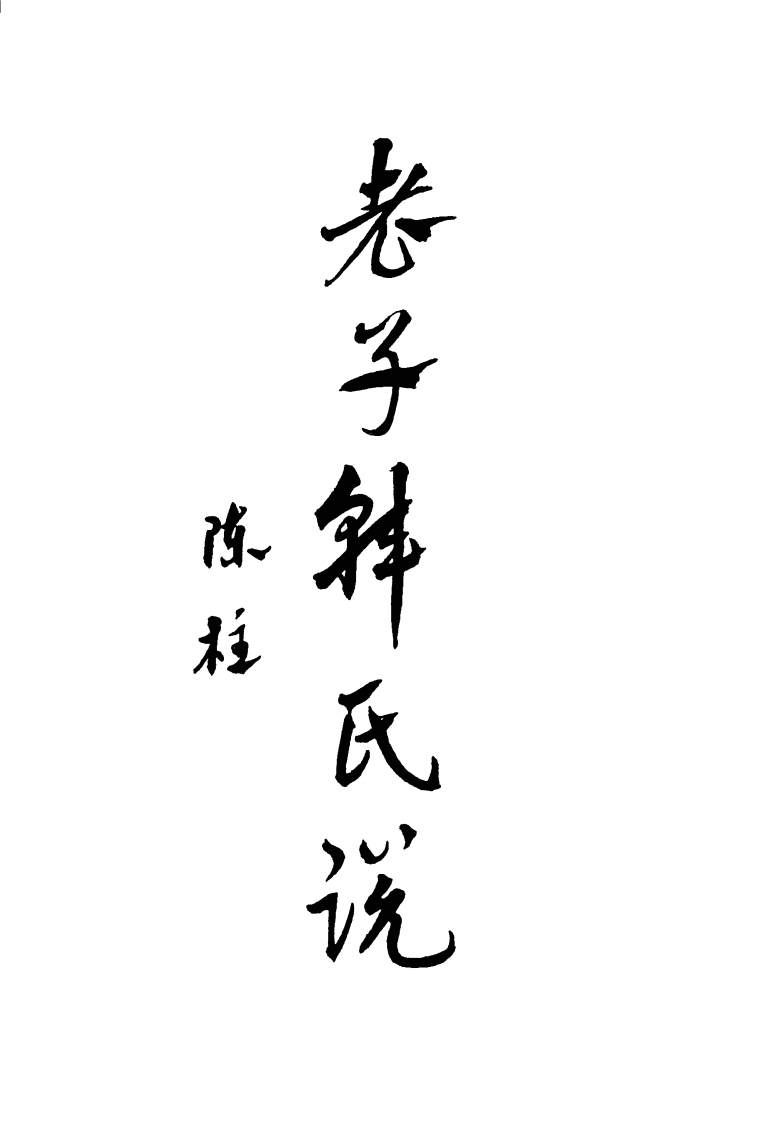 老子韩氏说
陈柱